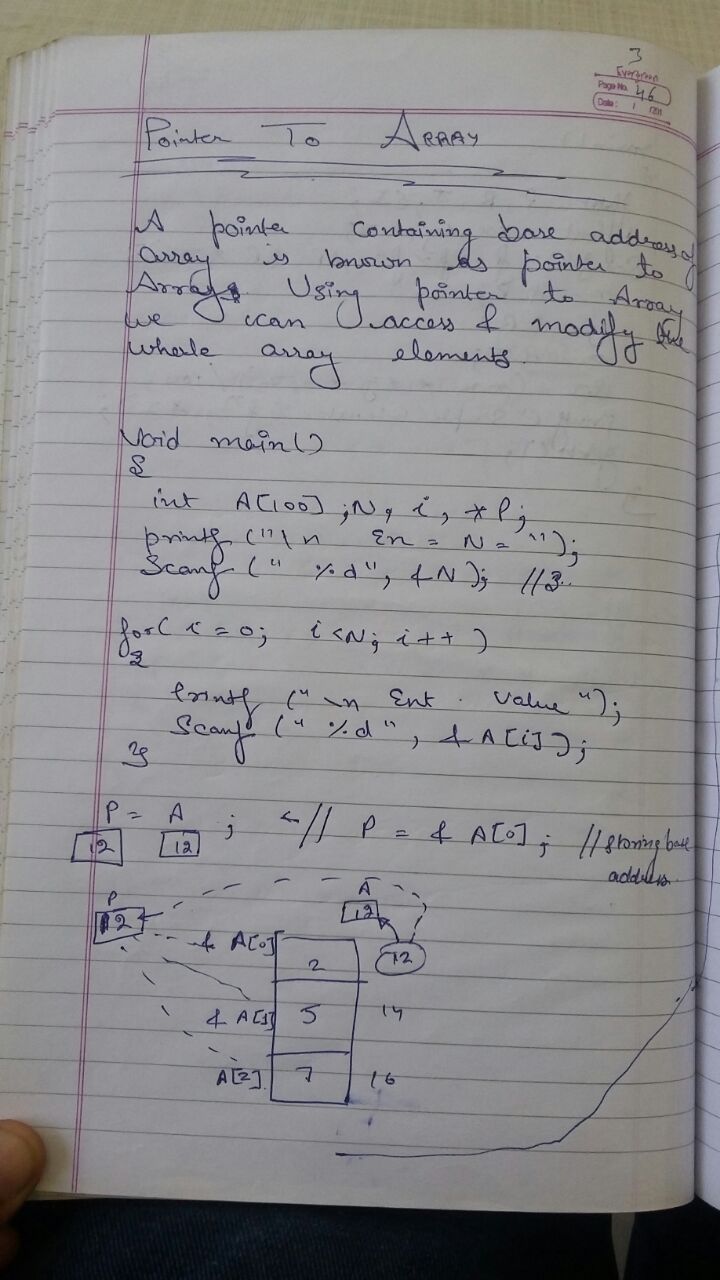 3
Evergreen
Page No. 46
Date: / /201
Pointer To ARRAY
A pointer containing base address of
array is known as pointer to
Array. Using pointer to Array
we can access & modify the
whole array elements.
Void main()
{
int A[100] ; N, i, *P;
printf ("\n En = N = ");
Scanf (" %d", &N); //3.
for( i = 0; i <N; i ++ )
{
Printf ("\n Ent. Value");
Scanf (" %d", & A[i]);
}
P = A ; ← // P = & A[0]; // storing base
12 12 address.
P A
12 12
& A[0] 2 12
& A[1] 5 14
A[2] 7 16